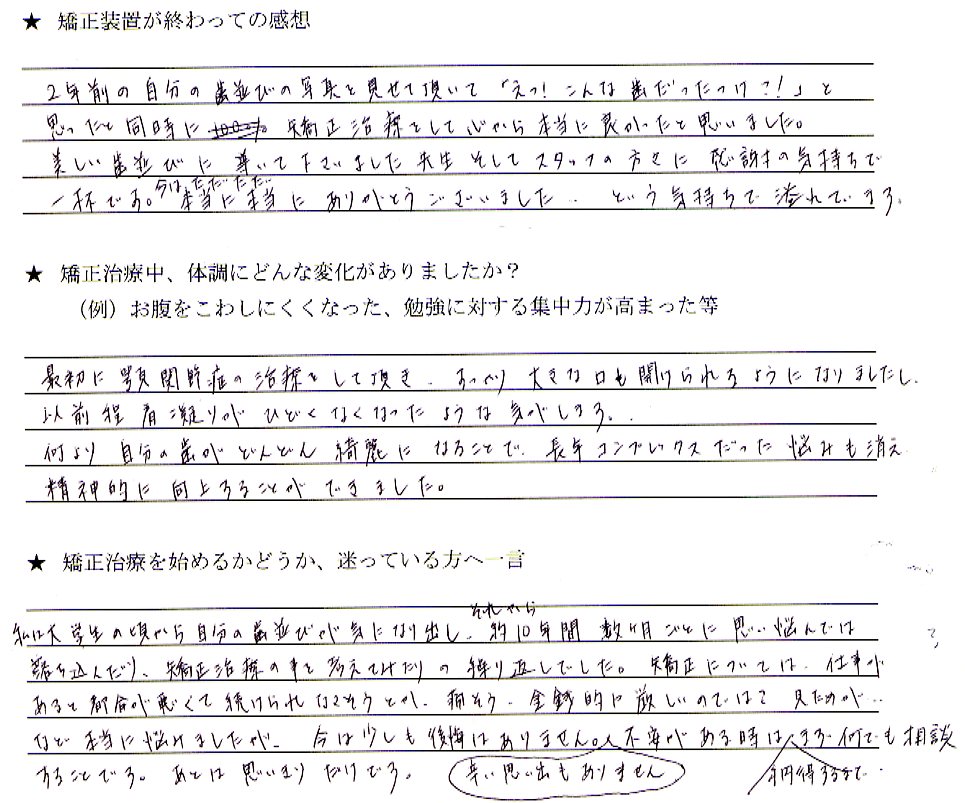 ★ 矯正装置が終わっての感想
2年前の自分の歯並びの写真を見せて頂いて「えっ!こんな歯だったっけ?!」と
思ったと同時に 矯正治療をして心から本当に良かったと思いました。
美しい歯並びに導いて下さいました先生そしてスタッフの方々に感謝の気持ちで
一杯です。今はただただ…本当に本当にありがとうございました… という気持ちで溢れています。
★ 矯正治療中、体調にどんな変化がありましたか?
(例)お腹をこわしにくくなった、勉強に対する集中力が高まった等
最初に顎関節症の治療をして頂き、すっかり大きな口も開けられるようになりましたし、
以前程肩凝りがひどくなくなったような気がします。
何より自分の歯がどんどん綺麗になることで、長年コンプレックスだった悩みも消え
精神的に向上することができました。
★ 矯正治療を始めるかどうか、迷っている方へ一言
私は大学生の頃から自分の歯並びが気になり出し、それから約10年間数ヶ月ごとに思い悩んでは
落ち込んだり、矯正治療の事を考えてみたりの繰り返しでした。矯正については、仕事が
あると都合が悪くて続けられなさそうとか、痛そう、金銭的に厳しいのではとか 見ためが…
など本当に悩みましたが、今は少しも後悔はありません。不安がある時は、まず何でも相談
することです。あとは思いきりだけです。 辛い思い出もありません 納得するまで…